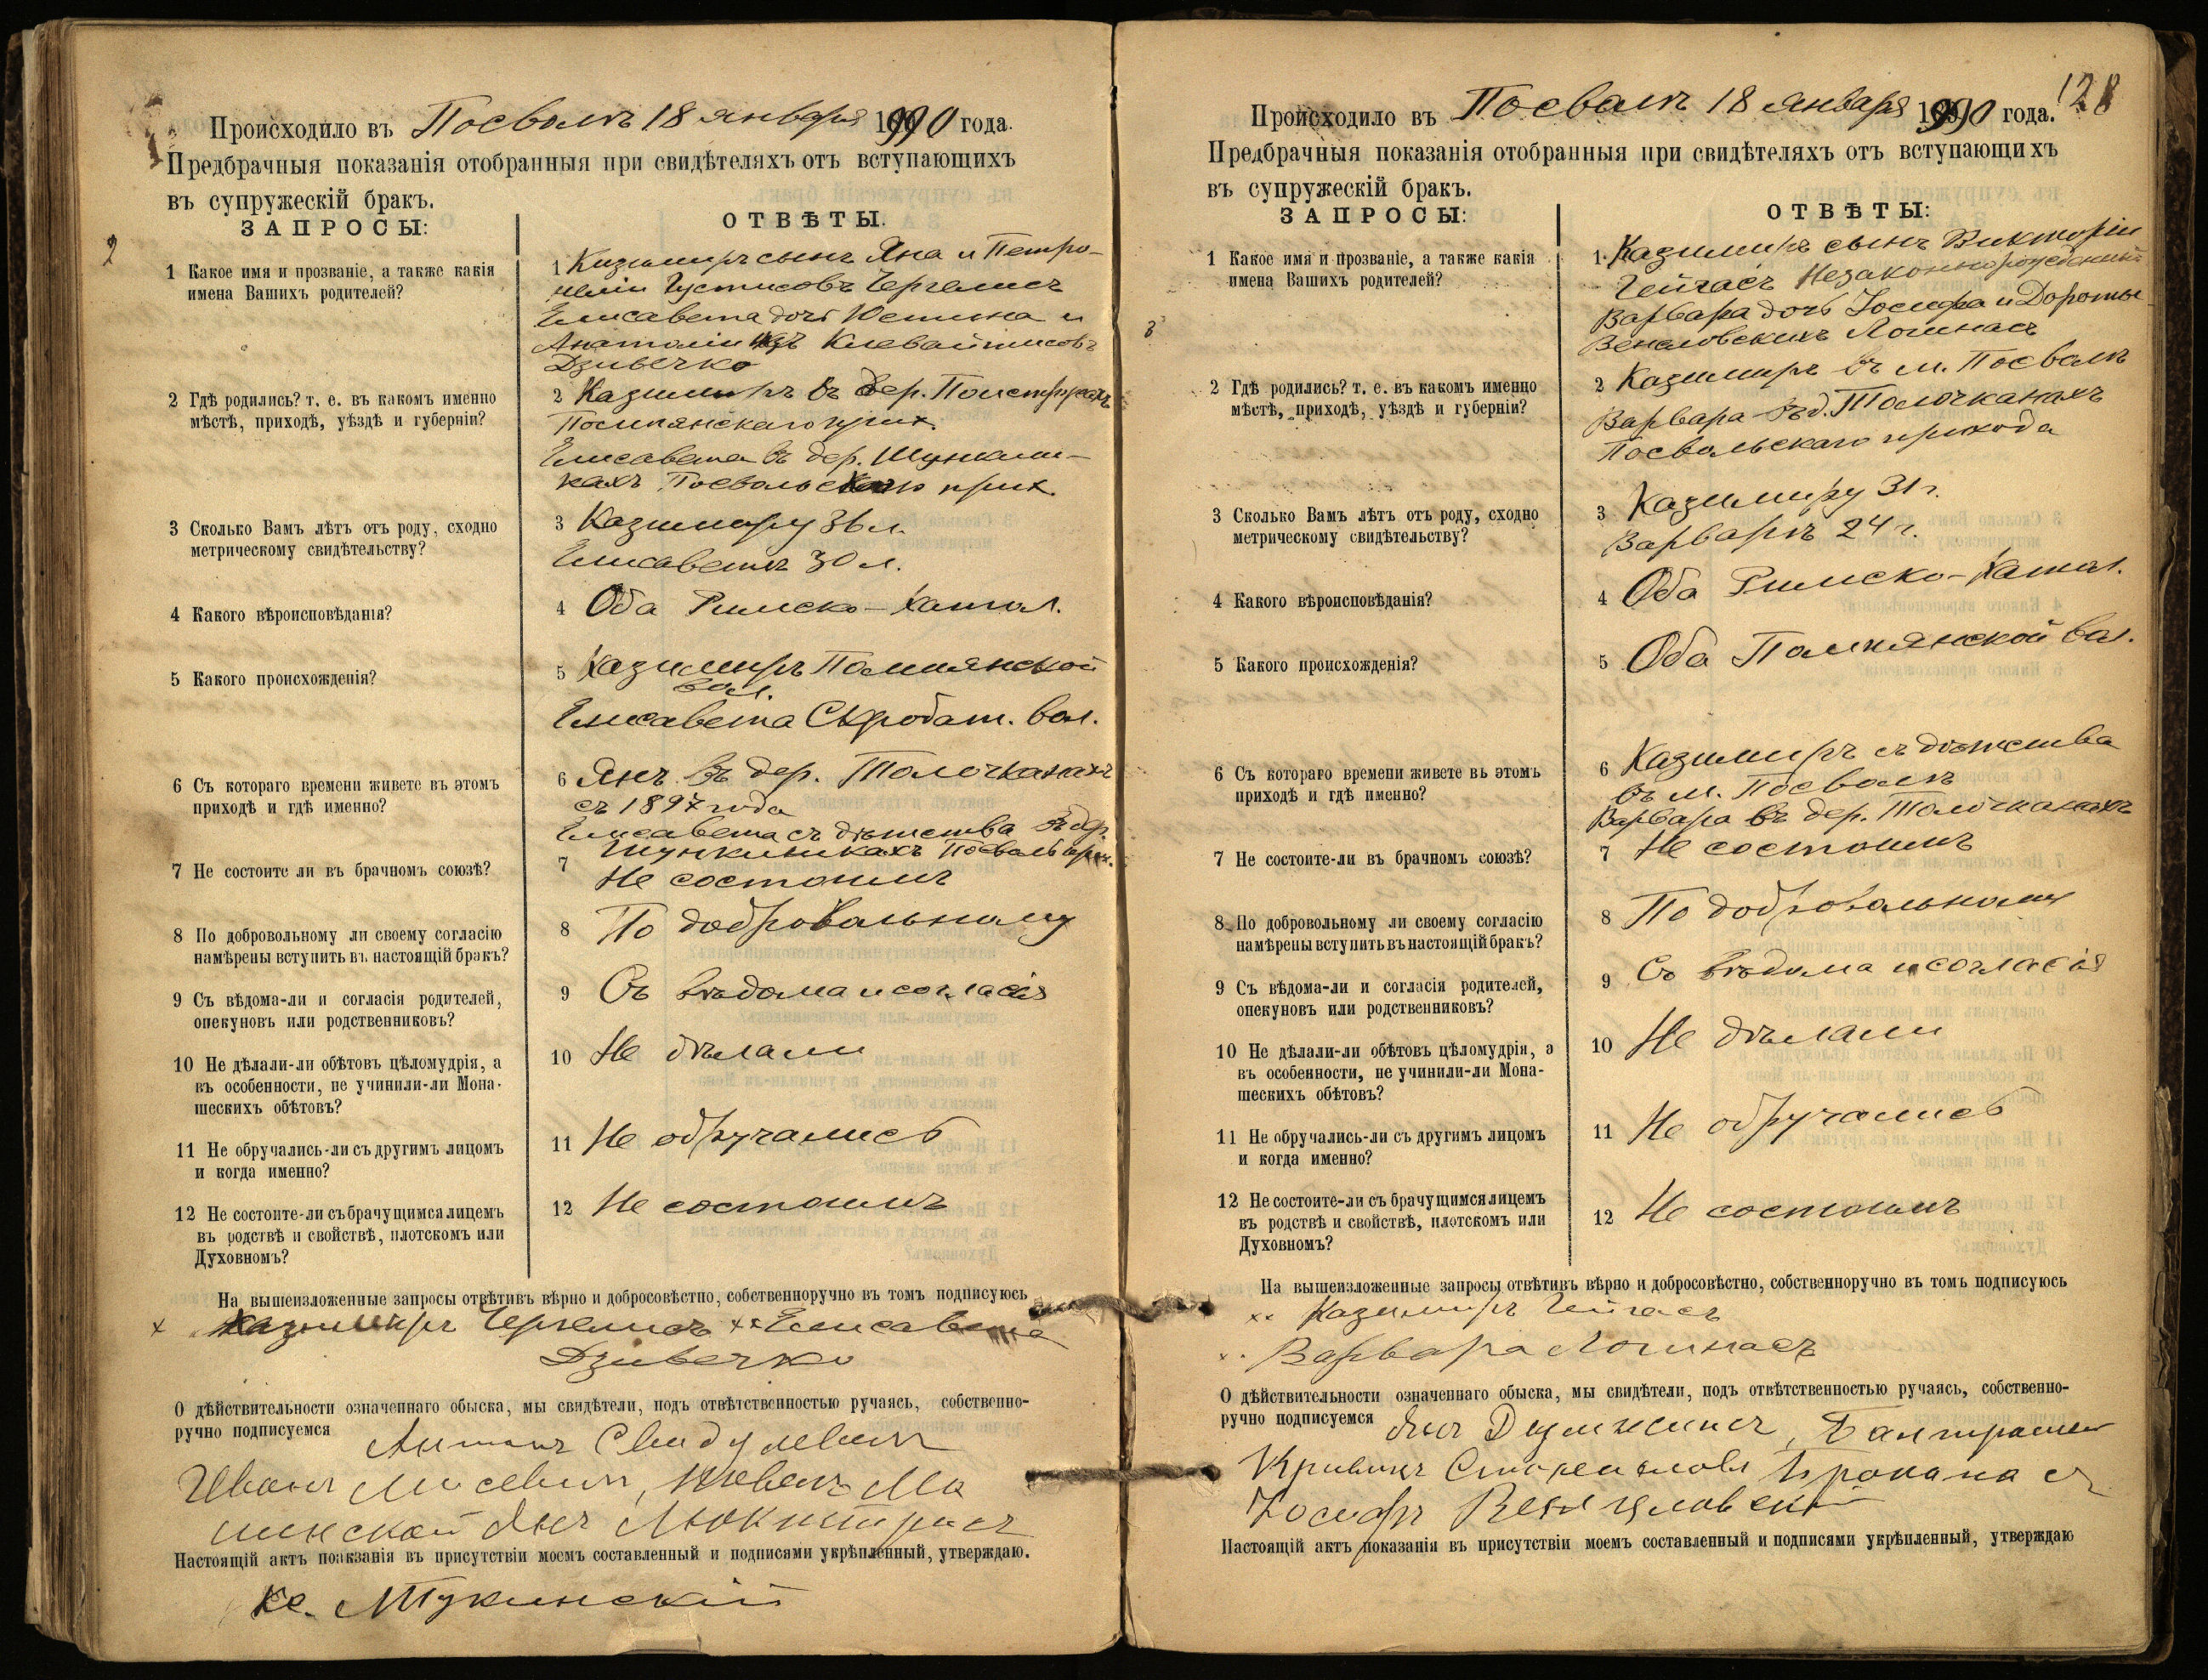 Происходило въ Посволѣ 18 января 1990 года.
Предбрачныя показанія отобранныя при свидѣтеляхъ отъ вступающихъ
въ супружескій бракъ.
ЗАПРОСЫ:
ОТВѢТЫ.
2
1 Какое имя и прозваніе, а также какія
имена Вашихъ родителей?
1 Казимиръ сынъ Яна и Петро-
нелии Густисовъ Чергелисъ
Елисавета дочь Юстина и
Анатоліи изъ Клевайтисовъ
Дзивечко
2 Гдѣ родились? т. е. въ какомъ именно
мѣстѣ, приходѣ, уѣздѣ и губерніи?
2 Казимиръ въ дер.
прих.
Елисавета въ дер. Шункини-
кахъ Посвольскаго прих.
3 Сколько Вамъ лѣтъ отъ роду, сходно
метрическому свидѣтельству?
3 Казимиру 36 л.
Елисаветѣ 30 л.
4 Какого вѣроисповѣданія?
4 Оба Римско-Катол.
5 Какого происхожденія?
5 Казимиръ Помпянской
вол.
Елисавета Скробат. вол.
6 Съ котораго времени живете въ этомъ
приходѣ и гдѣ именно?
6 Янъ въ дер. Толочканахъ
съ 1897 года
Елисавета съ дѣтства въ дер.
Шункиникахъ Посволь прих.
7 Не состоите ли въ брачномъ союзѣ?
7 Не состоимъ
8 По добровольному ли своему согласію
намѣрены вступить въ настоящій бракъ?
8 По добровольному
9 Съ вѣдома-ли и согласія родителей,
опекуновъ или родственниковъ?
9 Съ вѣдома и согласія
10 Не дѣлали-ли обѣтовъ цѣломудрія, а
въ особенности, не учинили-ли Мона-
шескихъ обѣтовъ?
10 Не дѣлали
11 Не обручались-ли съ другимъ лицомъ
и когда именно?
11 Не обручались
12 Не состоите-ли съ брачущимся лицемъ
въ родствѣ и свойствѣ, плотскомъ или
Духовномъ?
12 Не состоимъ
На вышеизложенные запросы отвѣтивъ вѣрно и добросовѣстно, собственноручно въ томъ подписуюсь
х Казимиръ Чергелисъ хх Елисавета
Дзивечко
О дѣйствительности означеннаго обыска, мы свидѣтели, подъ отвѣтственностью ручаясь, собственно-
ручно подписуемся Антонъ
Иванъ
Янъ
Настоящій актъ поакзанія въ присутствіи моемъ составленный и подписями укрѣпленный, утверждаю.
Кс. МТукинскій
128
Происходило въ Посволѣ 18 января 1990 года.
Предбрачныя показанія отобранныя при свидѣтеляхъ отъ вступающихъ
въ супружескій бракъ.
ЗАПРОСЫ:
ОТВѢТЫ:
3
1 Какое имя и прозваніе, а также какія
имена Вашихъ родителей?
1 Казимиръ сынъ Викторіи
Гейгасъ Незаконнорожденный
Варвара дочь Іосифа и Дороты
Венцловскихъ Логинасъ
2 Гдѣ родились? т. е. въ какомъ именно
мѣстѣ, приходѣ, уѣздѣ и губерніи?
2 Казимиръ въ м. Посволѣ
Варвара въ д. Толочканахъ
Посвольскаго прихода
3 Сколько Вамъ лѣтъ отъ роду, сходно
метрическому свидѣтельству?
3 Казимиру 31 г.
Варварѣ 24 г.
4 Какого вѣроисповѣданія?
4 Оба Римско-Катол.
5 Какого происхожденія?
5 Оба Помпянской вол.
6 Съ котораго времени живете въ этомъ
приходѣ и гдѣ именно?
6 Казимиръ съ дѣтства
въ м. Посволѣ
Варвара въ дер. Толочканахъ
7 Не состоите-ли въ брачномъ союзѣ?
7 Не состоимъ
8 По добровольному ли своему согласію
намѣрены вступить въ настоящій бракъ?
8 По добровольному
9 Съ вѣдома-ли и согласія родителей,
опекуновъ или родственниковъ?
9 Съ вѣдома и согласія
10 Не дѣлали-ли обѣтовъ цѣломудрія, а
въ особенности, не учинили-ли Мона-
шескихъ обѣтовъ?
10 Не дѣлали
11 Не обручались-ли съ другимъ лицомъ
и когда именно?
11 Не обручались
12 Не состоите-ли съ брачущимся лицемъ
въ родствѣ и свойствѣ, плотскомъ или
Духовномъ?
12 Не состоимъ
На вышеизложенные запросы отвѣтивъ вѣрно и добросовѣстно, собственноручно въ томъ подписуюсь
хх Казимиръ Гейгасъ
Варвара Логинасъ
О дѣйствительности означеннаго обыска, мы свидѣтели, подъ отвѣтственностью ручаясь, собственно-
ручно подписуемся Янъ
Іосифъ
Настоящій актъ показанія въ присутствіи моемъ составленный и подписями укрѣпленный, утверждаю